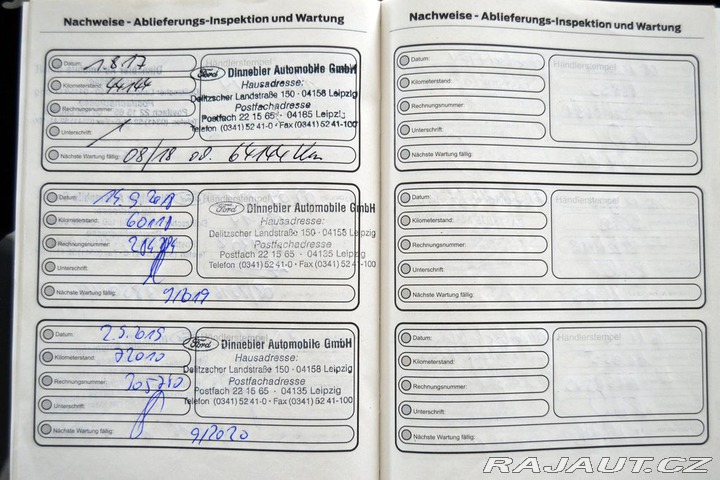 Nachweise - Ablieferungs-Inspektion und Wartung
Datum: 1.8.17
Kilometerstand: 44144
Rechnungsnummer:
Unterschrift:
Nächste Wartung fällig: 08/18 od. 64144 Km
Ford Dinnebier Automobile GmbH
Hausadresse:
Delitzscher Landstraße 150 · 04158 Leipzig
Postfachadresse
Postfach 22 15 65 · 04135 Leipzig
Telefon (0341) 52 41-0 · Fax (0341) 52 41-100
Datum:
Kilometerstand: 60118
Rechnungsnummer:
Unterschrift:
Nächste Wartung fällig: 9/2019
Händlerstempel
Ford Dinnebier Automobile GmbH
Hausadresse:
Delitzscher Landstraße 150 · 04158 Leipzig
Postfachadresse
Postfach 22 15 65 · 04135 Leipzig
Telefon (0341) 52 41-0 · Fax (0341) 52 41-100
Datum:
Kilometerstand: 72010
Rechnungsnummer:
Unterschrift:
Nächste Wartung fällig: 9/2020
Händlerstempel
Ford Dinnebier Automobile GmbH
Hausadresse:
Delitzscher Landstraße 150 · 04158 Leipzig
Postfachadresse
Postfach 22 15 65 · 04135 Leipzig
Telefon (0341) 52 41-0 · Fax (0341) 52 41-100
Nachweise - Ablieferungs-Inspektion und Wartung
Datum:
Kilometerstand:
Rechnungsnummer:
Unterschrift:
Nächste Wartung fällig:
Händlerstempel
Datum:
Kilometerstand:
Rechnungsnummer:
Unterschrift:
Nächste Wartung fällig:
Händlerstempel
Datum:
Kilometerstand:
Rechnungsnummer:
Unterschrift:
Nächste Wartung fällig:
Händlerstempel
RAJAUT.CZ